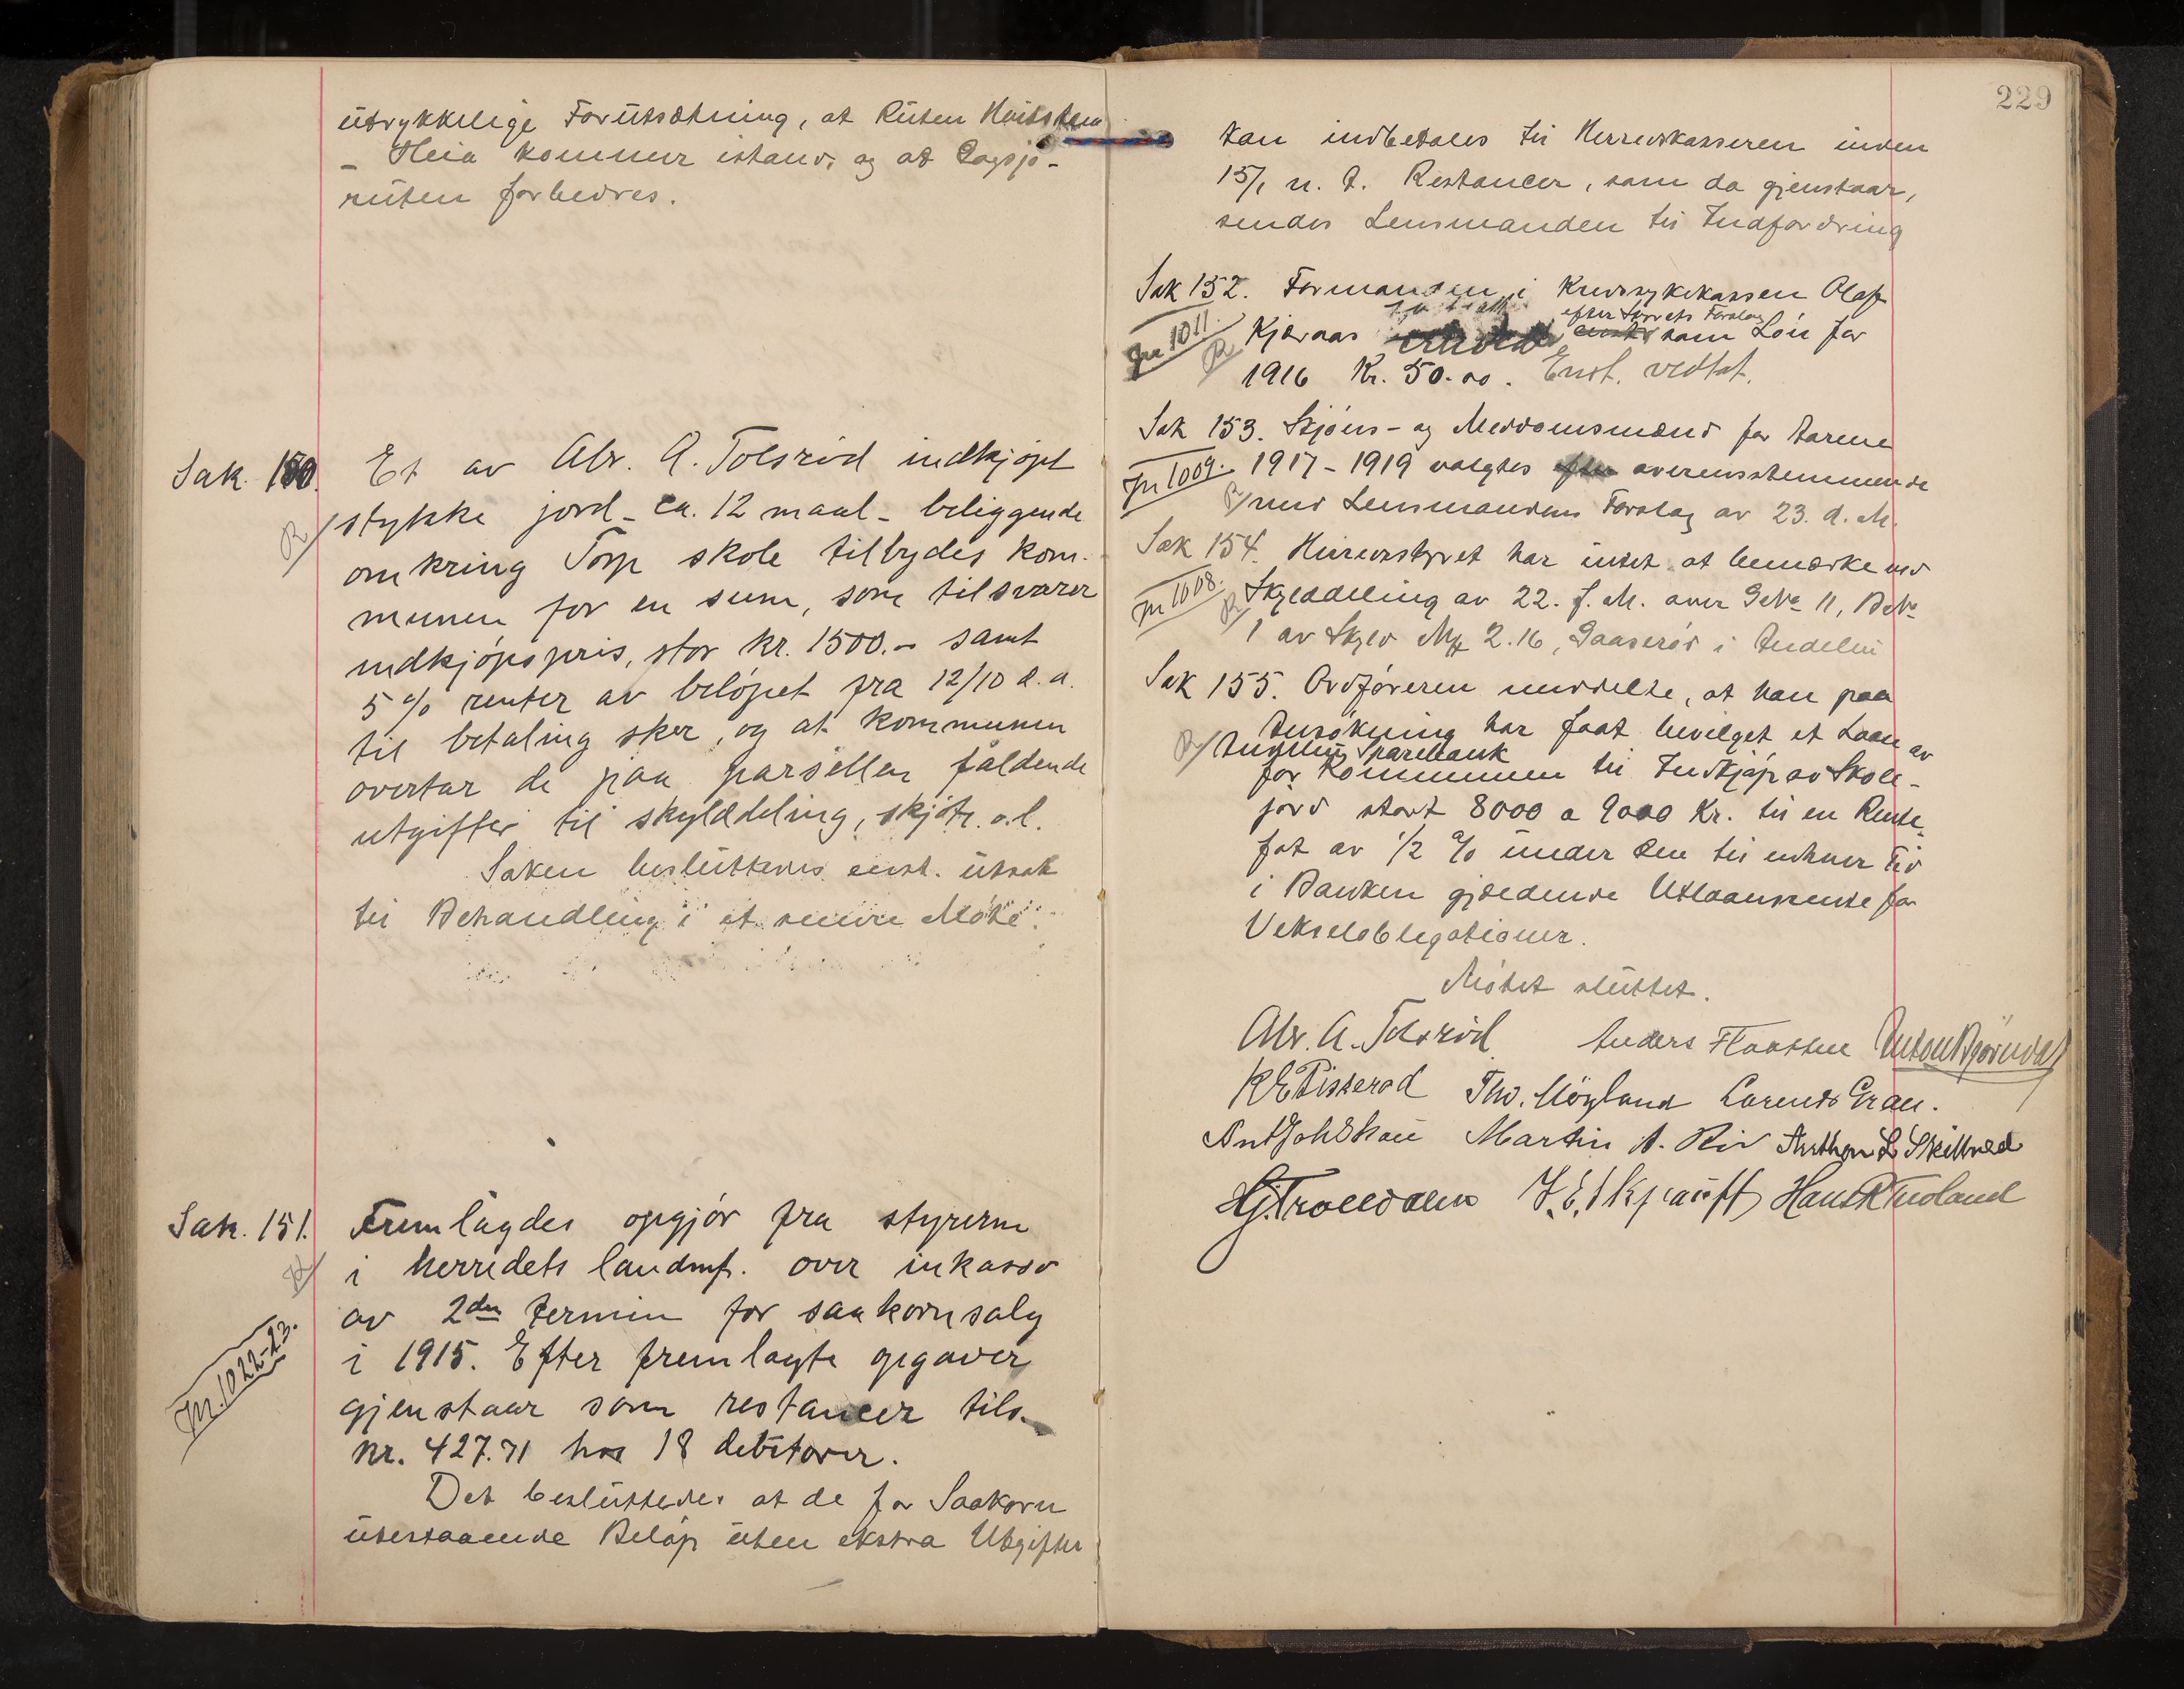 utrykkelige Forutsætning, at Ruten Hvitsten
- Heia kommer istand, og at Dagsjø-
ruten forbedres.
Sak. 150. Et av Abr. A. Tolsrød indkjøpt
R/ stykke jord - ca. 12 maal - beliggende
omkring Torp skole tilbydes kom-
munen for en sum, som tilsvarer
indkjøpspris, stor kr. 1500.- samt
5 % renter av beløpet fra 12/10 d.a.
til betaling sker, og at kommunen
overtar de paa parsellen faldende
utgifter til skylddeling, skjøte o.l.
Saken besluttedes enst. utsat
til Behandling i et senere Møte.
Sak. 151. Fremlagdes opgjør fra styrerne
R/ i herredets landmf. over inkasso
av 2den termin for saakornsalg
Jn. 1022-23. i 1915. Efter fremlagte opgaver
gjenstaar som restancer tils.
kr. 427.71 hos 18 debitorer.
Det besluttedes at de for Saakorn
utestaaende Beløp uten ekstra Utgifter
229
kan indbetales til Herredskasseren inden
15/1 n. A. Restancer, som da gjenstaar,
sendes Lensmanden til Indfordring
Sak 152. Formanden i Kredssykekassen Olaf
efter Styrets Forslag
Jn 1011. R/ Kjæraas som Løn for
1916 Kr. 50.00. Enst. vedtat.
Sak 153. Skjøns- og Meddomsmænd for Aarene
Jn 1009. 1917-1919 valgtes efter overensstemmende
R/ med Lensmandens Forslag av 23. d. M.
Sak 154. Herredsstyret har intet at bemærke ved
Jn 1008. R/ Skylddeling av 22. f. M. over G№ 11, B№
1 av Skyld Mk 2.16, Gaaserød i Andebu
Sak 155. Ordføreren meddelte, at han paa
Ansøkning har faat bevilget et Laan av
R/ Andebu Sparebank
for Kommunen til Indkjøp av Skole-
jord stort 8000 a 9000 Kr. til en Rente-
fot av 1/2 % under den til enhver Tid
i Banken gjældende Utlaansrente for
Vekselobligationer.
Møtet sluttet.
Abr. A. Tolsrød. Anders Flaatten Anton Bjørndal
K E Pisserød Tho. Møyland Lorents Gran.
Ant Joh Skau Martin A. Riv Anthon L Skillned
Hj. Trolldalen Hans R Tuoland